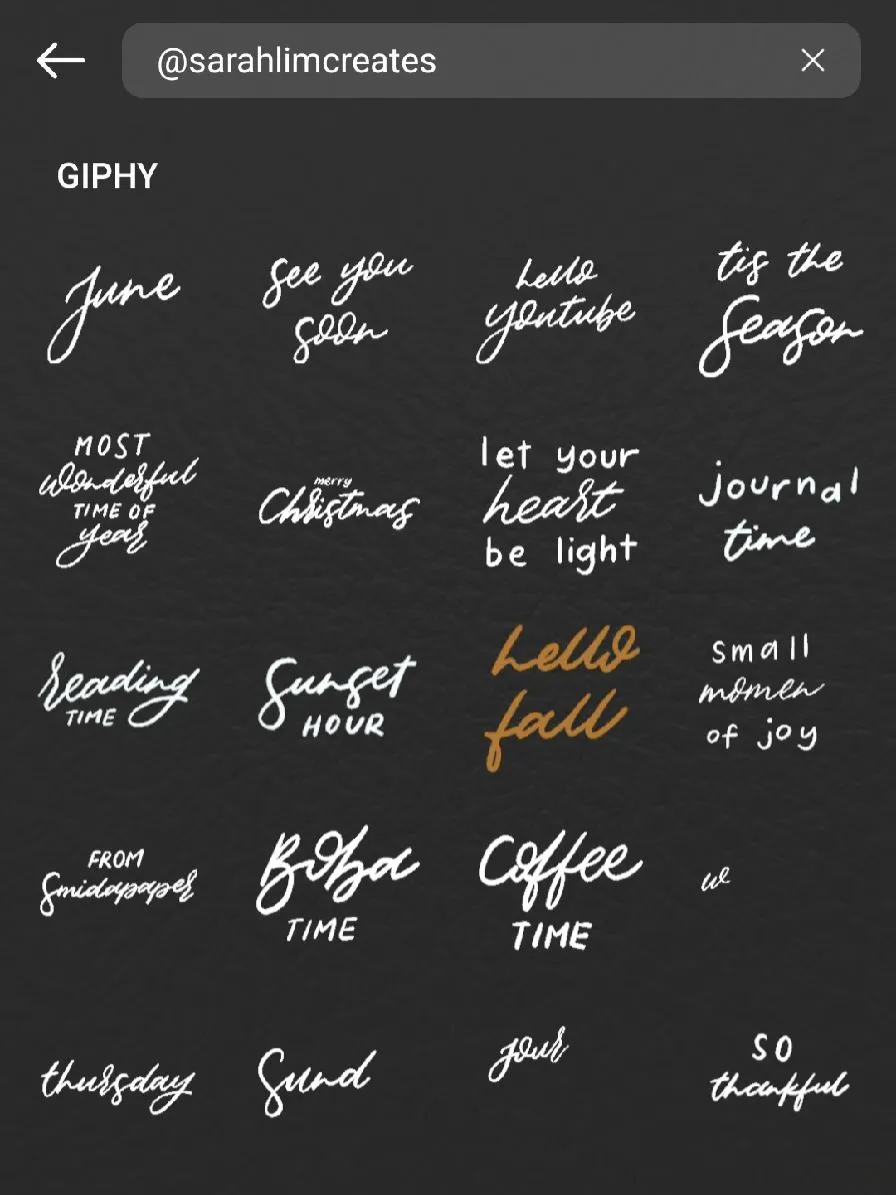 @sarahlimcreates
GIPHY
June
see you
soon
hello
youtube
tis the
season
MOST
wonderful
TIME OF
year
merry
Christmas
let your
heart
be light
journal
time
reading
TIME
Sunset
HOUR
hello
fall
small
momen
of joy
FROM
Smidapaper
Boba
TIME
Coffee
TIME
we
thursday
Sund
jour
SO
thankful